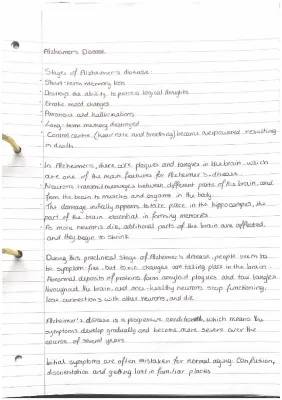 Alzheimer's Disease
Stages of Alzheimer's disease:
· Short-term memory loss
· Destroys the ability to process logical thoughts
· Erratic mood changes
· Paranoia and hallucinations
· Long-term memory destroyed
· Control centre (heart rate and breathing) become overpowered resulting
in death.
· In Alzheimer's, there are plaques and tangles in the brain which
are one of the main features for Alzheimer's disease.
· Neurons transmit messages between different parts of the brain, and
from the brain to muscles and organs in the body.
· The damage initially appears to take place in the hippocampus, the
part of the brain essential in forming memories.
· As more neurons die, additional parts of the brain are affected,
and they begin to shrink
During this preclinical stage of Alzheimer's disease, people seem to
be symptom-free, but toxic changes are taking place in the brain.
Abnormal deposits of proteins form amyloid plaques and tau tangles
throughout the brain, and once-healthy neurons stop functioning,
lose connections with other neurons, and die.
Alzheimer's disease is a progressive condition, which means the
symptoms develop gradually and become more severe over the
course of several years.
Initial symptoms are often mistaken for normal aging. Confusion,
disorientation and getting lost in familiar places